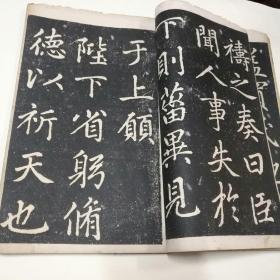 禱之奏曰臣
聞人事失於
下則菑異見
于上願
陛下省躬脩
德以祈天也